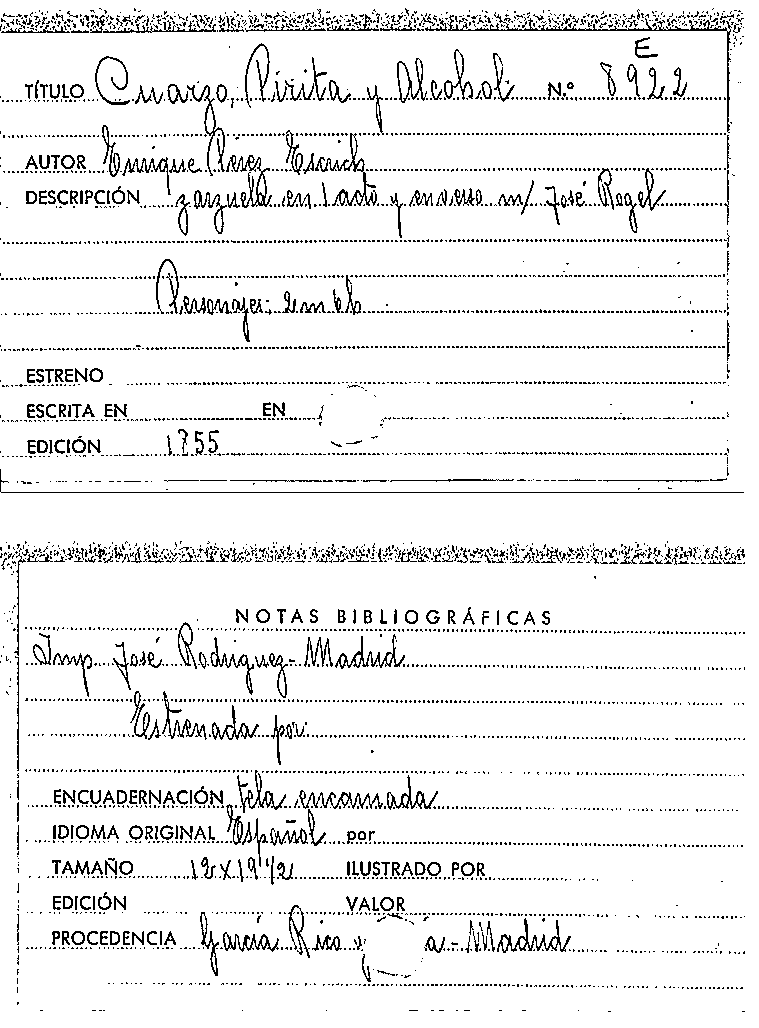 E
TÍTULO Cuarzo, Pirita y Alcohol N.º 8922
AUTOR Enrique Pérez Escrich
DESCRIPCIÓN zarzuela en 1 acto y en verso m/ José Rogel
Personajes: 2m 6h
ESTRENO
ESCRITA EN EN
EDICIÓN 1855
NOTAS BIBLIOGRÁFICAS
Imp. José Rodriguez - Madrid
Estrenada por:
ENCUADERNACIÓN tela encarnada
IDIOMA ORIGINAL Español por
TAMAÑO 12 x 19 1/2 ILUSTRADO POR
EDICIÓN VALOR
PROCEDENCIA García Rico y a - Madrid